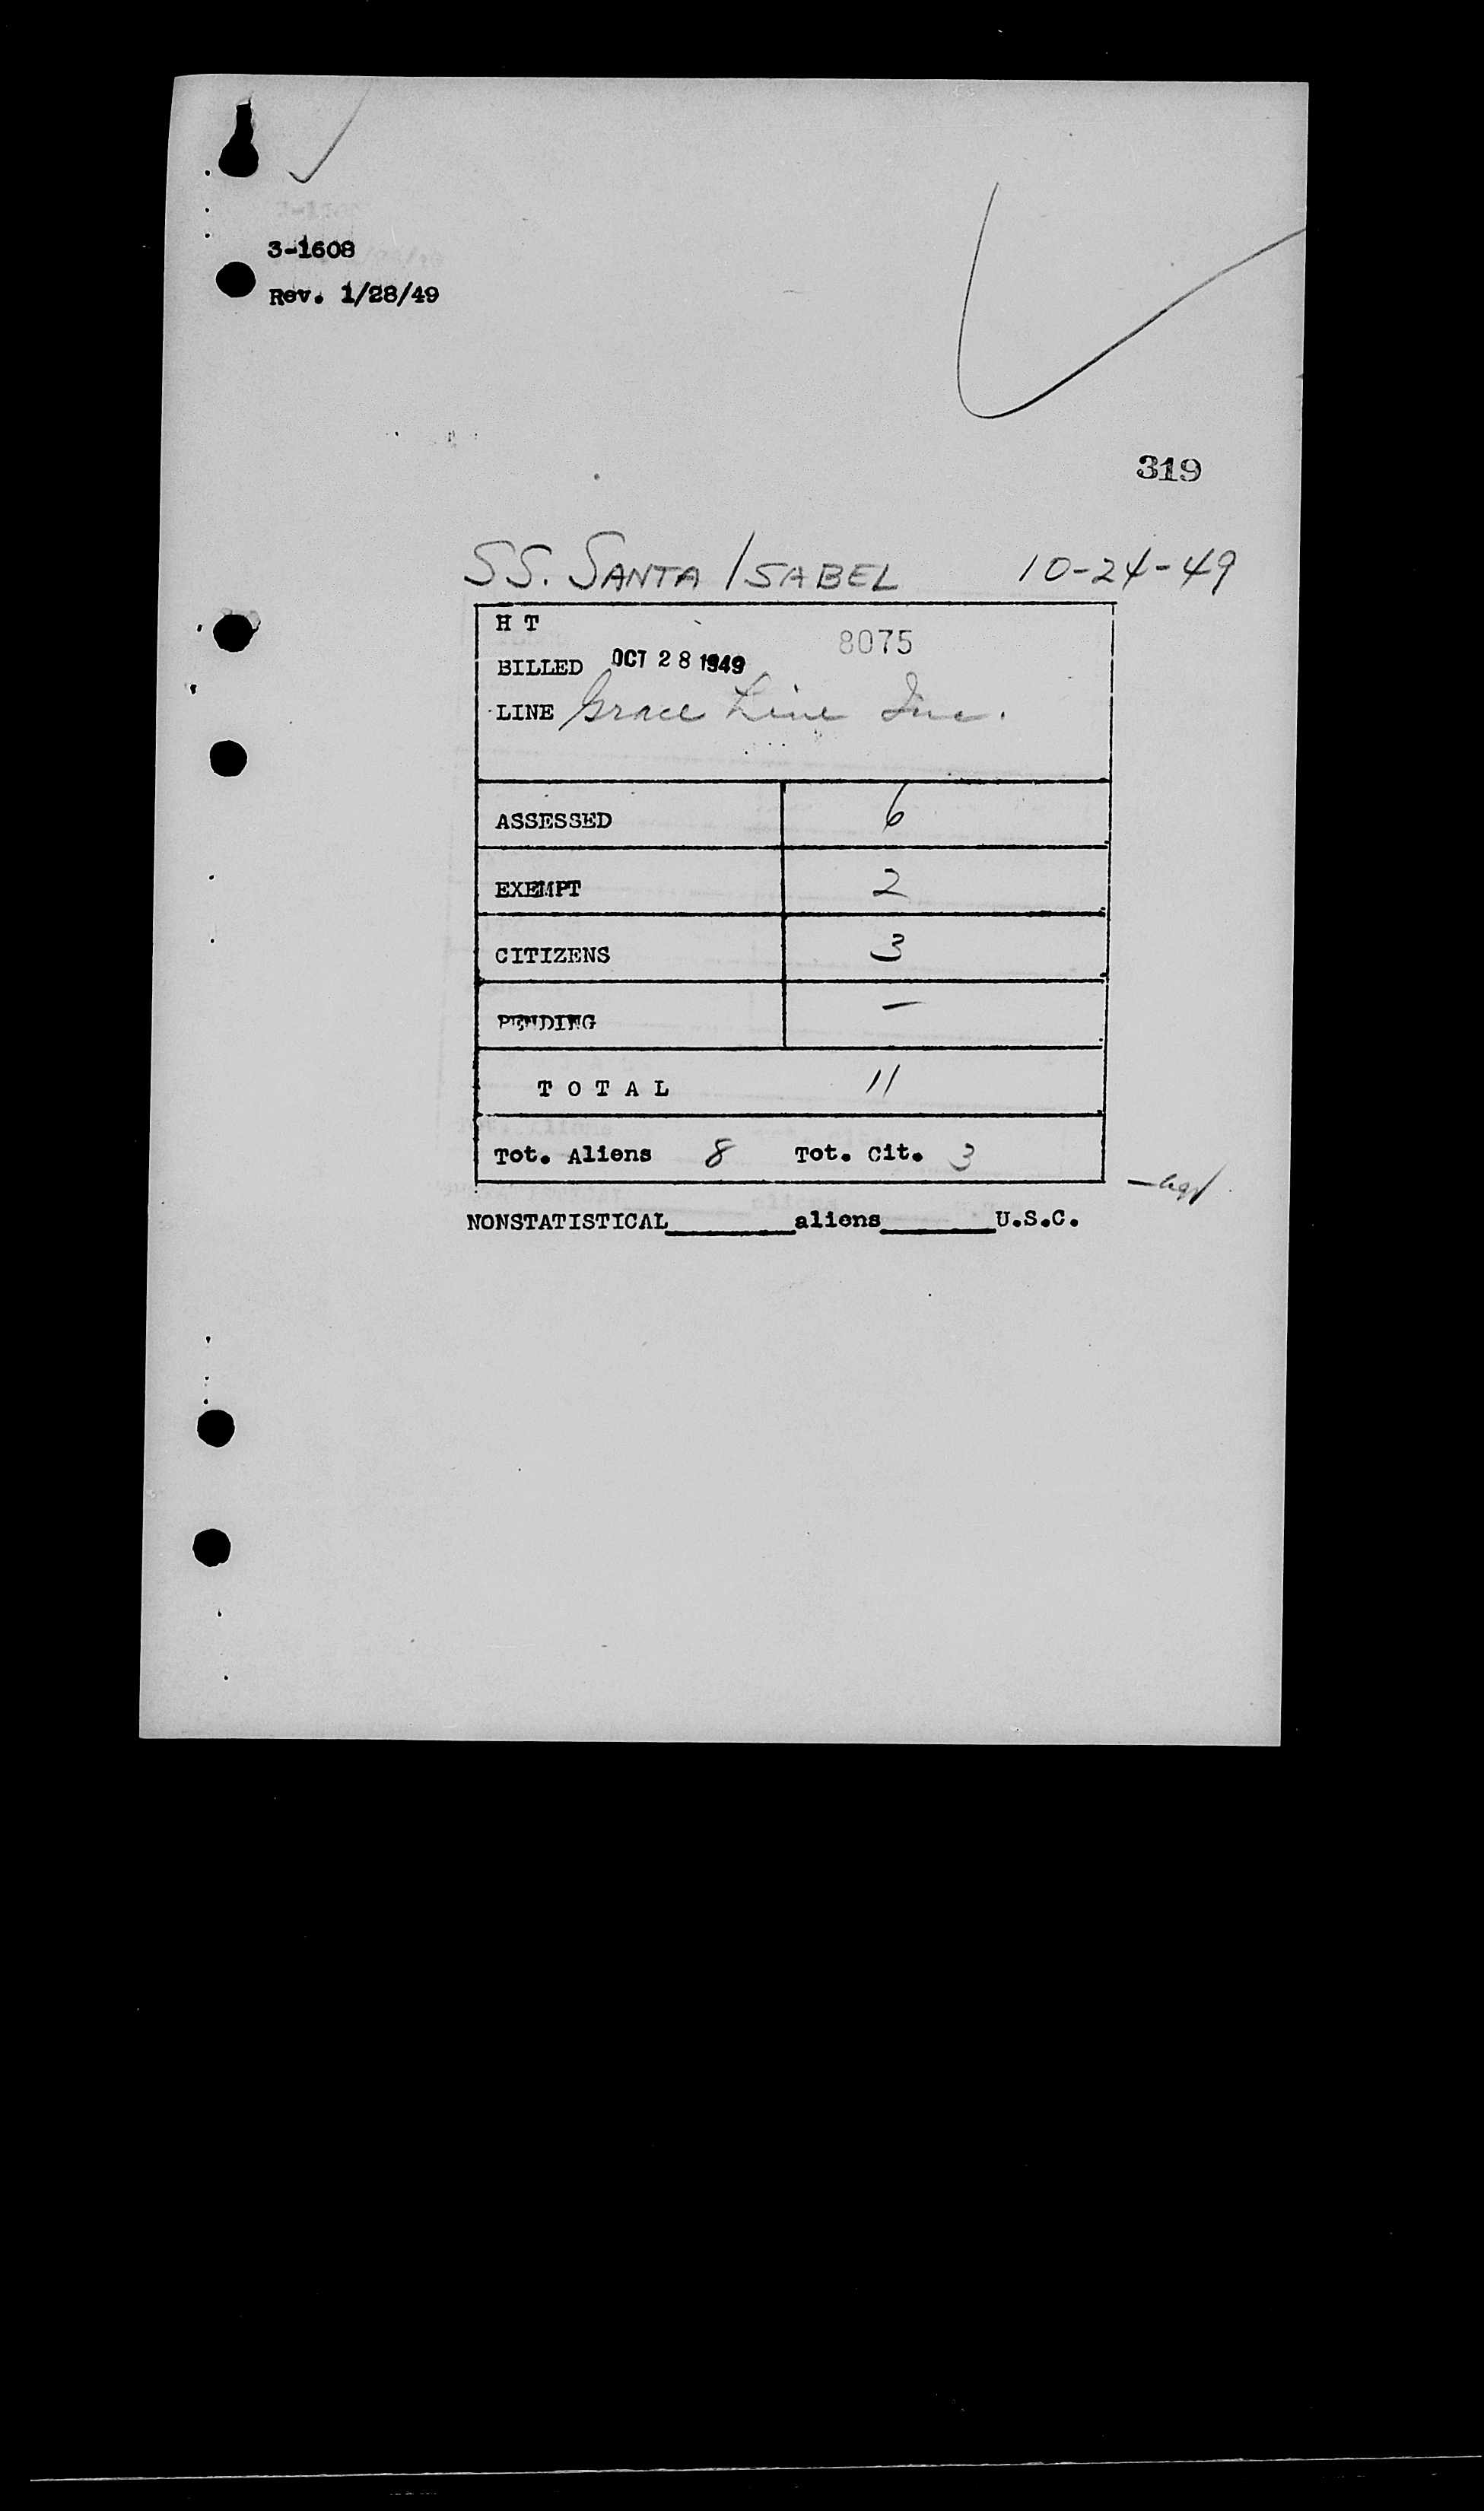 3-1608
Rev. 1/28/49
319
SS. SANTA ISABEL 10-24-49
H T
8075
BILLED OCT 28 1949
LINE Grace Line Inc.
ASSESSED 6
EXEMPT 2
CITIZENS 3
PENDING —
T O T A L 11
Tot. Aliens 8 Tot. Cit. 3
NONSTATISTICAL________aliens________U.S.C.